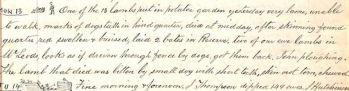 Jun 13 One of the 13 lambs put in potato garden yesterday very lame, unable
to walk, marks of dogs teeth in hind quarter, died at midday, after skinning found
quarter red swollen & bruised, laid 2 baits in Reserve, two of our ewe lambs in
McLeods, looks as if driven through fence by dogs, got them back, John ploughing.
The lamb that died was bitten by small dog with short teeth, skin not torn, showed
14 Fine morning & forenoon, J Thompson dipped 149 ewes, J Hutchinson